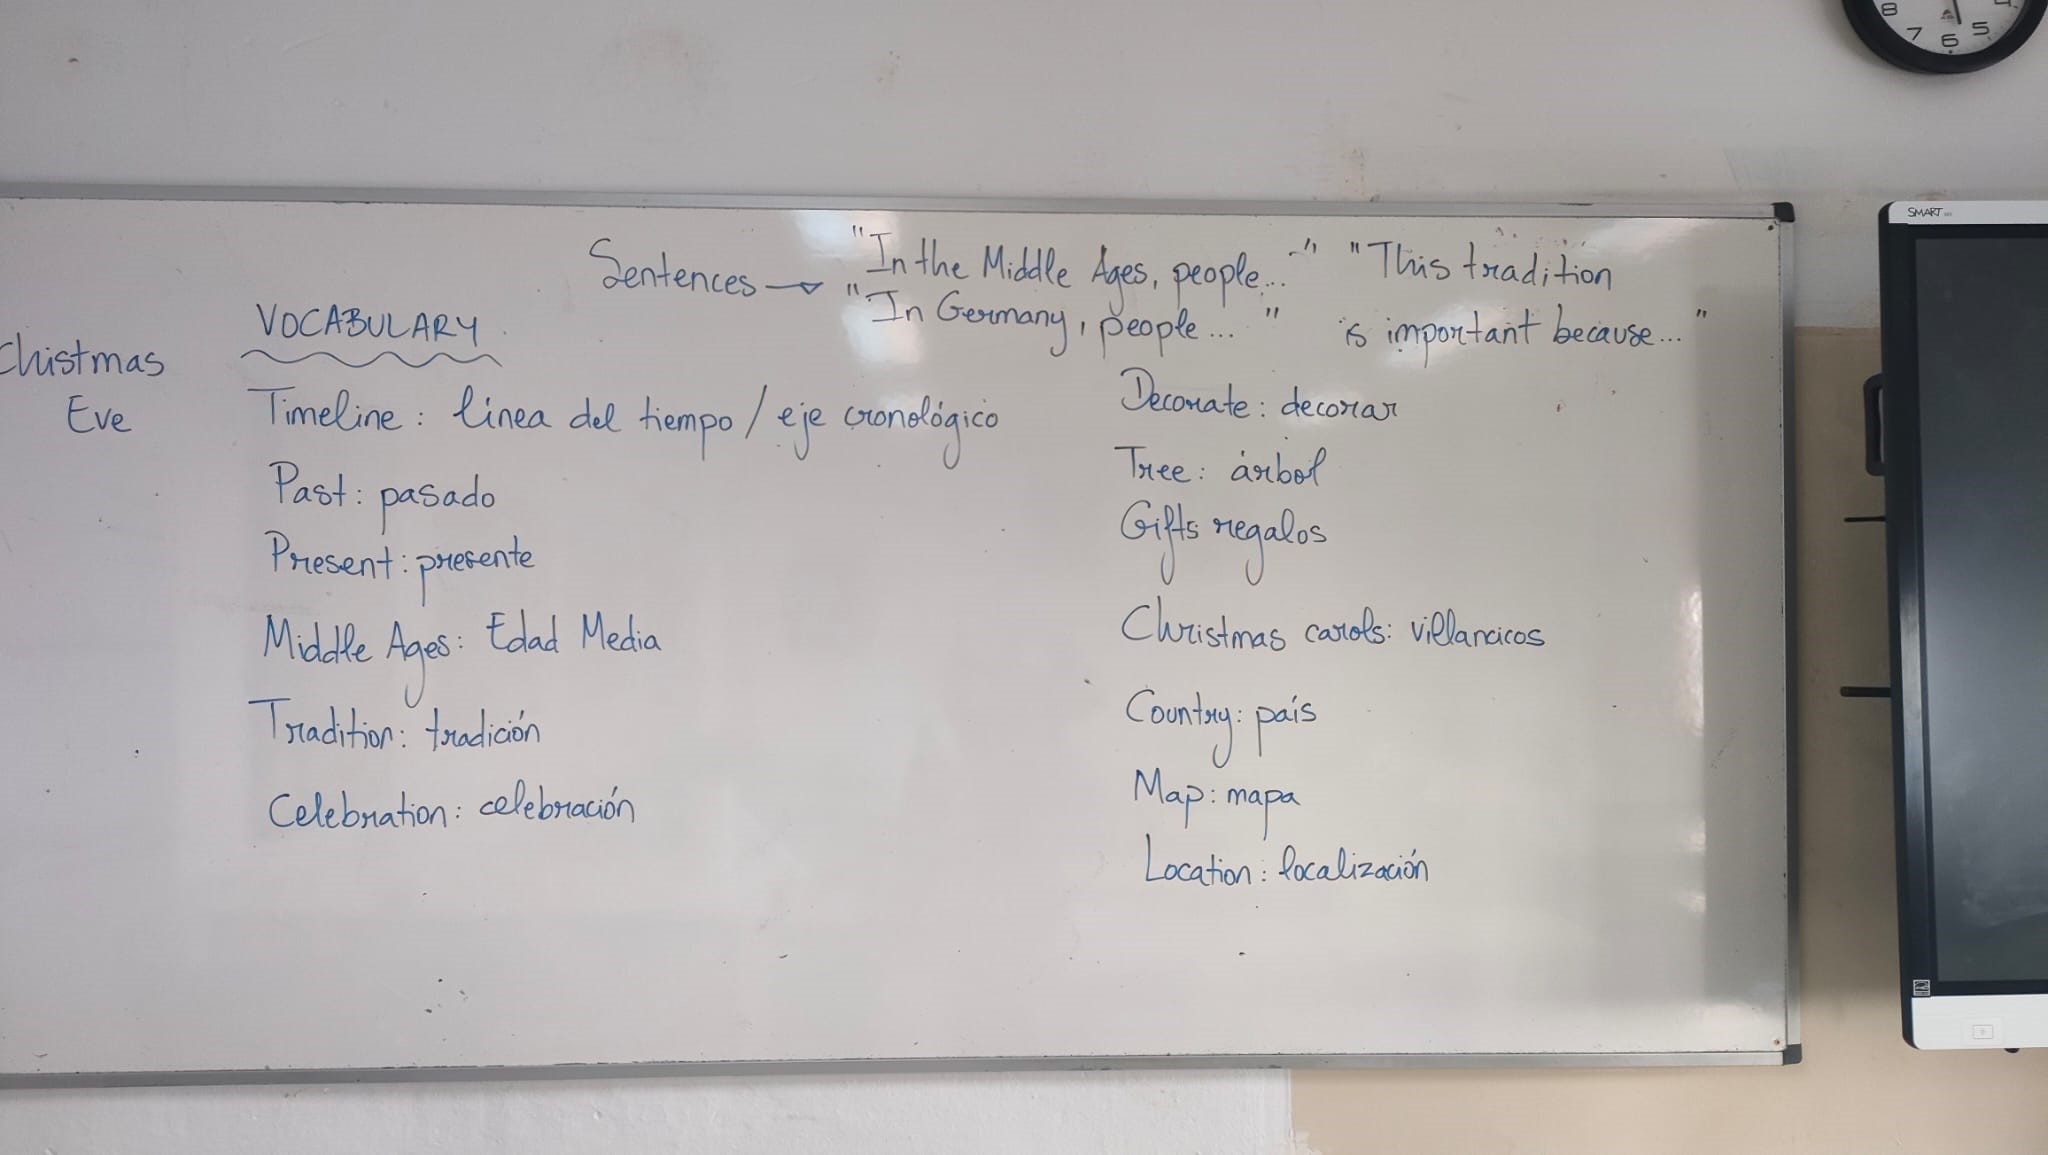 Sentences → "In the Middle Ages, people..." "This tradition
"In Germany, people..." is important because..."
Chistmas
Eve
VOCABULARY
Timeline: línea del tiempo / eje cronológico
Past: pasado
Present: presente
Middle Ages: Edad Media
Tradition: tradición
Celebration: celebración
Decorate: decorar
Tree: árbol
Gifts regalos
Christmas carols: villancicos
Country: país
Map: mapa
Location: localización
8 7 6 5 4
SMART